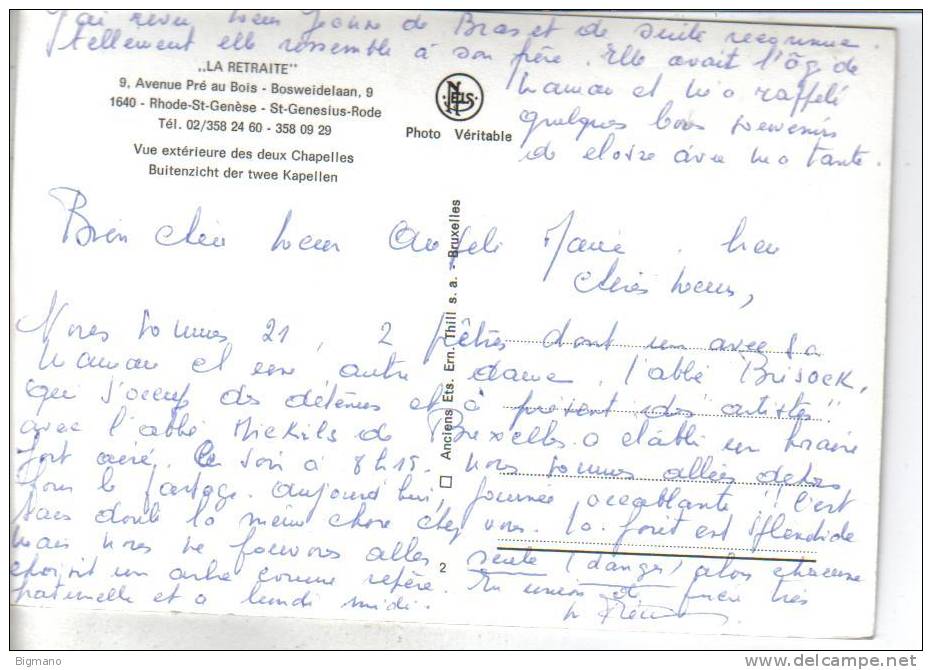 J'ai revu soeur Jeanne de Bras et de suite reconnue
tellement elle ressemble à son frère. Elle avait l'âge de
maman et m'a rappelé
quelques bons souvenirs
de avec ma tante.
„LA RETRAITE"
9, Avenue Pré au Bois - Bosweidelaan, 9
1640 - Rhode-St-Genèse - St-Genesius-Rode
Tél. 02/358 24 60 - 358 09 29
Vue extérieure des deux Chapelles
Buitenzicht der twee Kapellen
NELS
Photo Véritable
Anciens Ets. Ern. Thill s. a. - Bruxelles
Bien chère soeur Marie .
chères soeurs,
Nous sommes 21, 2 prêtres dont un avec sa
maman et une autre dame, l'abbé Brisock,
qui s'occupe des détenus et à présent des "artistes"
avec l'abbé de Bruxelles a établi un horaire
fort aéré. Ce soir à 8h15. nous sommes allées dehors
pour le partage. aujourd'hui, journée accablante!! c'est
sans doute la même chose chez vous. La forêt est splendide
mais nous ne pouvons aller seule (danger) alors chacune
choisit un arbre comme repère. En union et prière très
fraternelle et à lundi midi.
2
Bigmano
www.delcampe.net